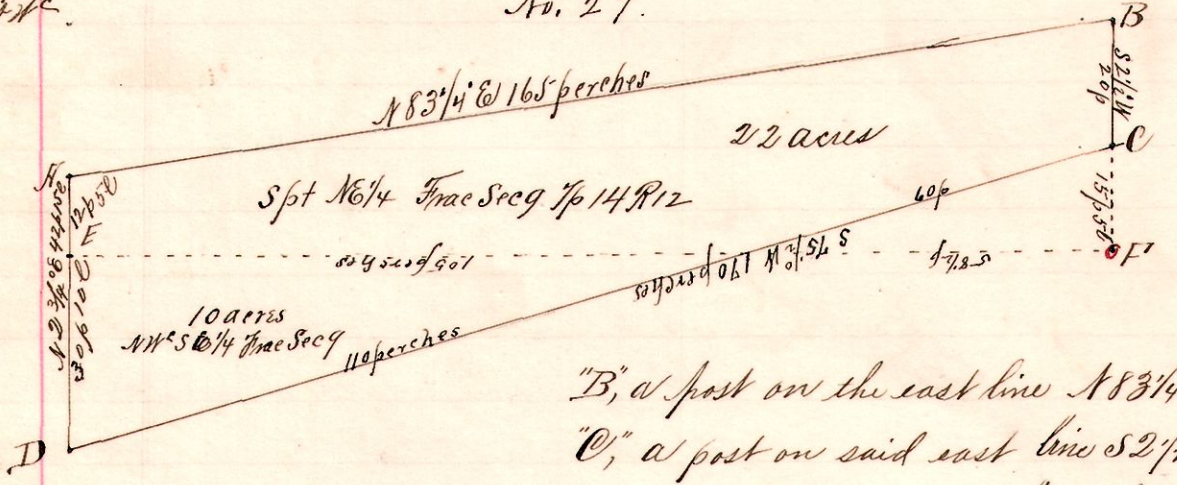 No. 27.
B
N 83 1/4° E 165 perches
S 2 1/2° W
20 p
22 acres
C
A
12 p 5 l
S pt NE 1/4 Frac Sec 9 Tp 14 R 12
60 p
15 p 5 l
E
N 2 3/4° E 42 p 15 l
S 75 1/2° W 170 perches
105 perches
58 1/2 p
F
30 p 10 l
10 acres
NWc SE 1/4 Frac Sec 9
110 perches
"B", a post on the east line N 83 1/4
D
"C", a post on said east line S 2 1/2